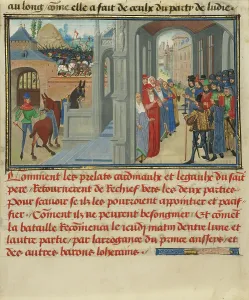 au long cõme elle a fait de ceulx du party de ludie.
Comment les prelatz cardinaulx et legaulx du saint
pere Retournerent de Rechief vers les deux parties
Pour scauoir se ilz les pourroient appointier et pacif
fier. Comẽt ilz ne peurent besongnier. Et cõmẽt
la bataille Recõmenca le ieudi matin dentre lune et
lautre partie, par larrogance du prince anssers et
des autres barons loherains.